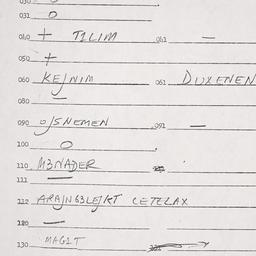 031 O
040 + TILIM 041 —
050 +
060 KEJNIM 061 DIJXENEN
080 —
090 O/SNEMEN 091 —
100 O
110 M3NADER
111 —
112 ARAJNG3LEJKT CETELAX
120 —
130 MAGIT